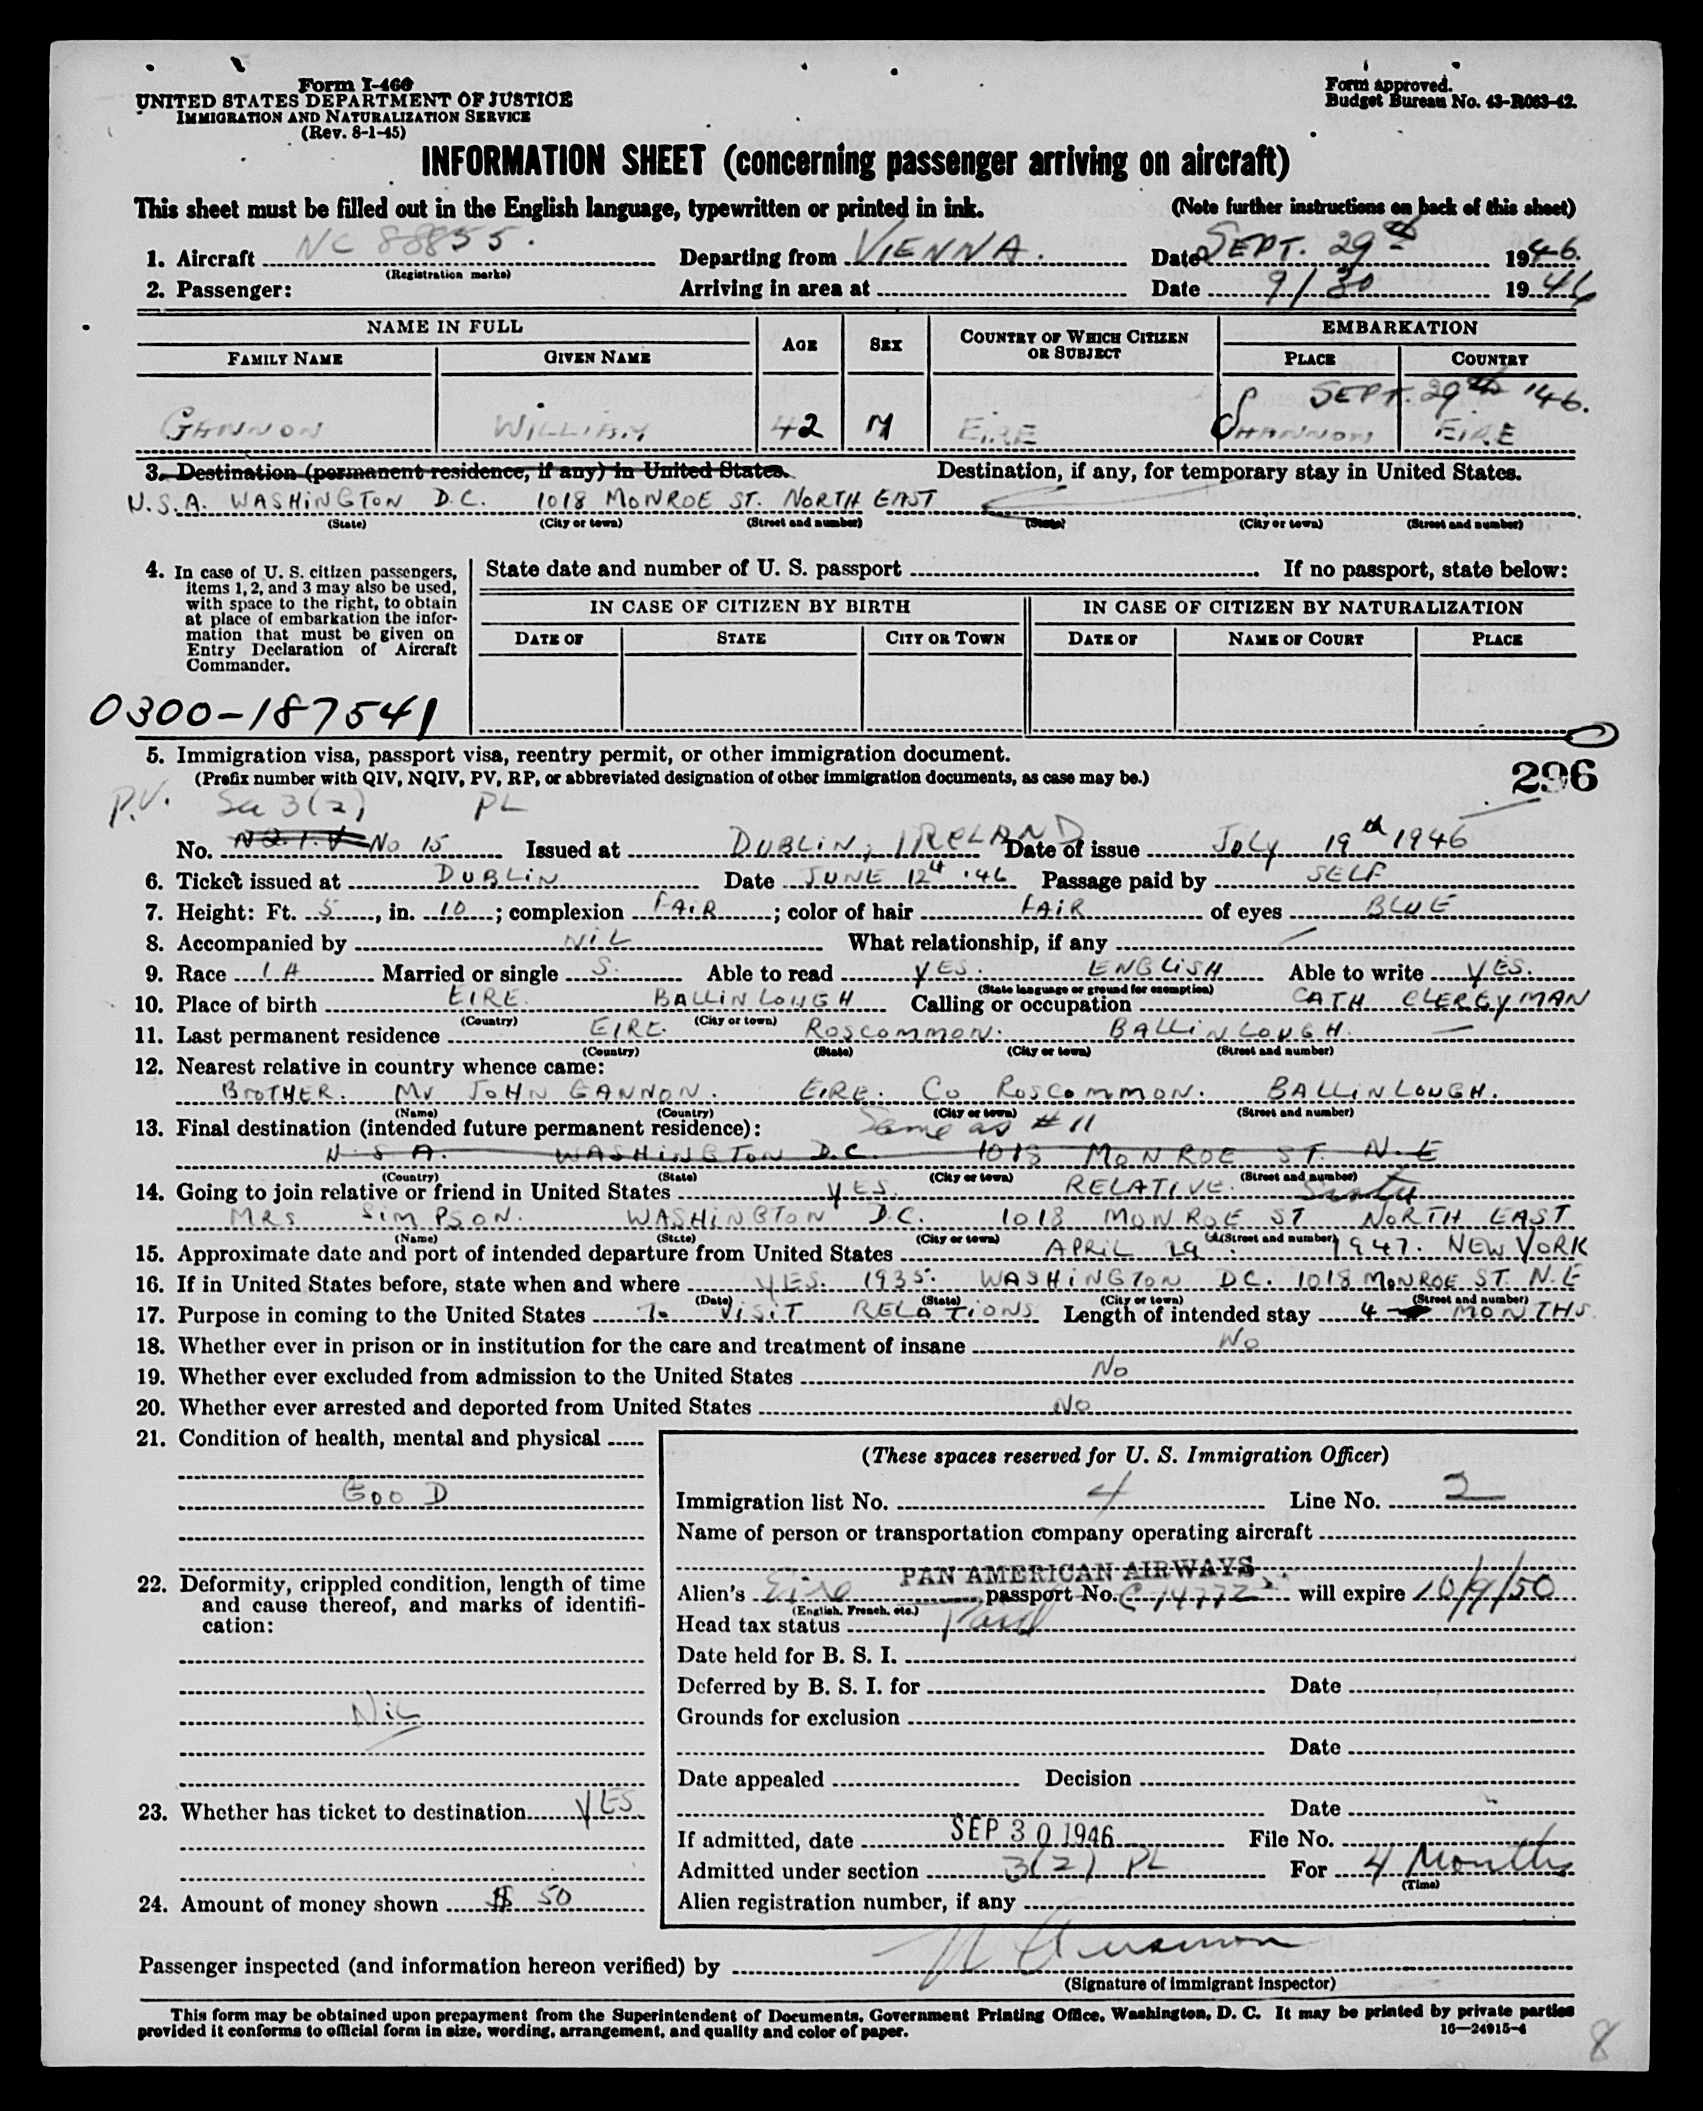 Form I-466
UNITED STATES DEPARTMENT OF JUSTICE
IMMIGRATION AND NATURALIZATION SERVICE
(Rev. 8-1-45)
Form approved.
Budget Bureau No. 43-R063-42.
INFORMATION SHEET (concerning passenger arriving on aircraft)
This sheet must be filled out in the English language, typewritten or printed in ink. (Note further instructions on back of this sheet)
1. Aircraft NC 88855. Departing from VIENNA. Date SEPT. 29th 1946.
(Registration marks)
2. Passenger: Arriving in area at Date 9/30 1946
NAME IN FULL AGE SEX COUNTRY OF WHICH CITIZEN OR SUBJECT EMBARKATION
FAMILY NAME GIVEN NAME PLACE COUNTRY
SEPT. 29th '46.
GANNON WILLIAM 42 M EIRE SHANNON EIRE
3. Destination (permanent residence, if any) in United States. Destination, if any, for temporary stay in United States.
U.S.A. WASHINGTON D.C. 1018 MONROE ST. NORTH EAST
(State) (City or town) (Street and number) (State) (City or town) (Street and number)
4. In case of U. S. citizen passengers, items 1, 2, and 3 may also be used, with space to the right, to obtain at place of embarkation the information that must be given on Entry Declaration of Aircraft Commander.
State date and number of U. S. passport If no passport, state below:
IN CASE OF CITIZEN BY BIRTH IN CASE OF CITIZEN BY NATURALIZATION
DATE OF STATE CITY OR TOWN DATE OF NAME OF COURT PLACE
0300-187541
5. Immigration visa, passport visa, reentry permit, or other immigration document.
(Prefix number with QIV, NQIV, PV, RP, or abbreviated designation of other immigration documents, as case may be.)
296
P.V. Sec 3(2) PL
No. N.Q.I.V No 15 Issued at DUBLIN, IRELAND Date of issue July 19th 1946
6. Ticket issued at DUBLIN Date JUNE 12th '46 Passage paid by SELF
7. Height: Ft. 5, in. 10; complexion FAIR; color of hair FAIR of eyes BLUE
8. Accompanied by NIL What relationship, if any —
9. Race Married or single S. Able to read YES. ENGLISH Able to write YES.
(State language or ground for exemption)
10. Place of birth EIRE. BALLINLOUGH Calling or occupation CATH CLERGYMAN
(Country) (City or town)
11. Last permanent residence EIRE. ROSCOMMON. BALLINLOUGH. —
(Country) (State) (City or town) (Street and number)
12. Nearest relative in country whence came:
BROTHER. Mr JOHN GANNON. EIRE. Co ROSCOMMON. BALLINLOUGH.
(Name) (Country) (City or town) (Street and number)
13. Final destination (intended future permanent residence): Same as #11
U S A. WASHINGTON D.C. 1018 MONROE ST. N.E
(Country) (State) (City or town) (Street and number)
14. Going to join relative or friend in United States YES. RELATIVE. Sister
MRS SIMPSON. WASHINGTON D.C. 1018 MONROE ST NORTH EAST
(Name) (State) (City or town) (Street and number)
15. Approximate date and port of intended departure from United States APRIL 29th 1947. NEW YORK
16. If in United States before, state when and where YES. 1935. WASHINGTON DC. 1018 MONROE ST. N.E
(Date) (State) (City or town) (Street and number)
17. Purpose in coming to the United States To VISIT RELATIONS Length of intended stay 4 MONTHS
18. Whether ever in prison or in institution for the care and treatment of insane No
19. Whether ever excluded from admission to the United States No
20. Whether ever arrested and deported from United States No
21. Condition of health, mental and physical
GOOD
22. Deformity, crippled condition, length of time and cause thereof, and marks of identification:
NiL
23. Whether has ticket to destination YES
24. Amount of money shown $ 50
(These spaces reserved for U. S. Immigration Officer)
Immigration list No. 4 Line No. 2
Name of person or transportation company operating aircraft
PAN AMERICAN AIRWAYS
Alien's Eire passport No. C 14772 will expire 10/9/50
(English, French, etc.)
Head tax status Paid
Date held for B. S. I.
Deferred by B. S. I. for Date
Grounds for exclusion
Date
Date appealed Decision
Date
If admitted, date SEP 30 1946 File No.
Admitted under section 3(2) PL For 4 Months
(Time)
Alien registration number, if any
Passenger inspected (and information hereon verified) by
(Signature of immigrant inspector)
This form may be obtained upon prepayment from the Superintendent of Documents, Government Printing Office, Washington, D. C. It may be printed by private parties
provided it conforms to official form in size, wording, arrangement, and quality and color of paper. 16—24915-4
8